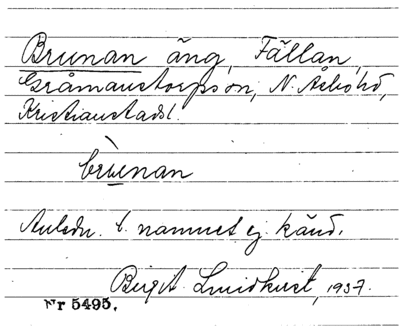 Brunan äng, Fällan,
Gråmanstorps sn, N. Åsbo hd,
Kristianstads l.
brunan
Anledn. t. namnet ej känd.
Birgit Lindkvist, 1937.
Nr 5495.